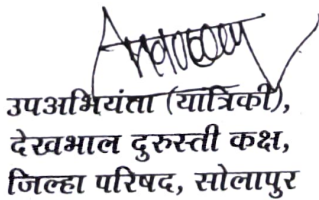 उपअभियंता (यात्रिकी),
देखभाल दुरुस्ती कक्ष,
जिल्हा परिषद, सोलापुर